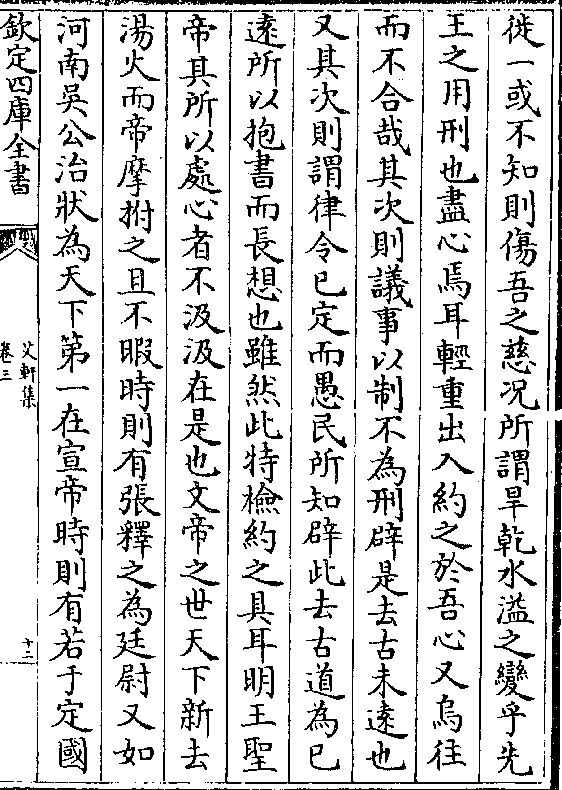 徙一或不知則傷吾之慈况所謂旱乾水溢之變乎先
王之用刑也盡心焉耳輕重出入約之於吾心又烏往
而不合哉其次則議事以制不為刑辟是去古未遠也
又其次則謂律令已定而愚民所知辟此去古道為已
遠所以抱書而長想也雖然此特檢約之具耳明王聖
帝其所以處心者不汲汲在是也文帝之世天下新去
湯火而帝摩拊之且不暇時則有張釋之為廷尉又如
河南吳公治狀為天下第一在宣帝時則有若于定國
欽定四庫全書
艾軒集
卷三
十二